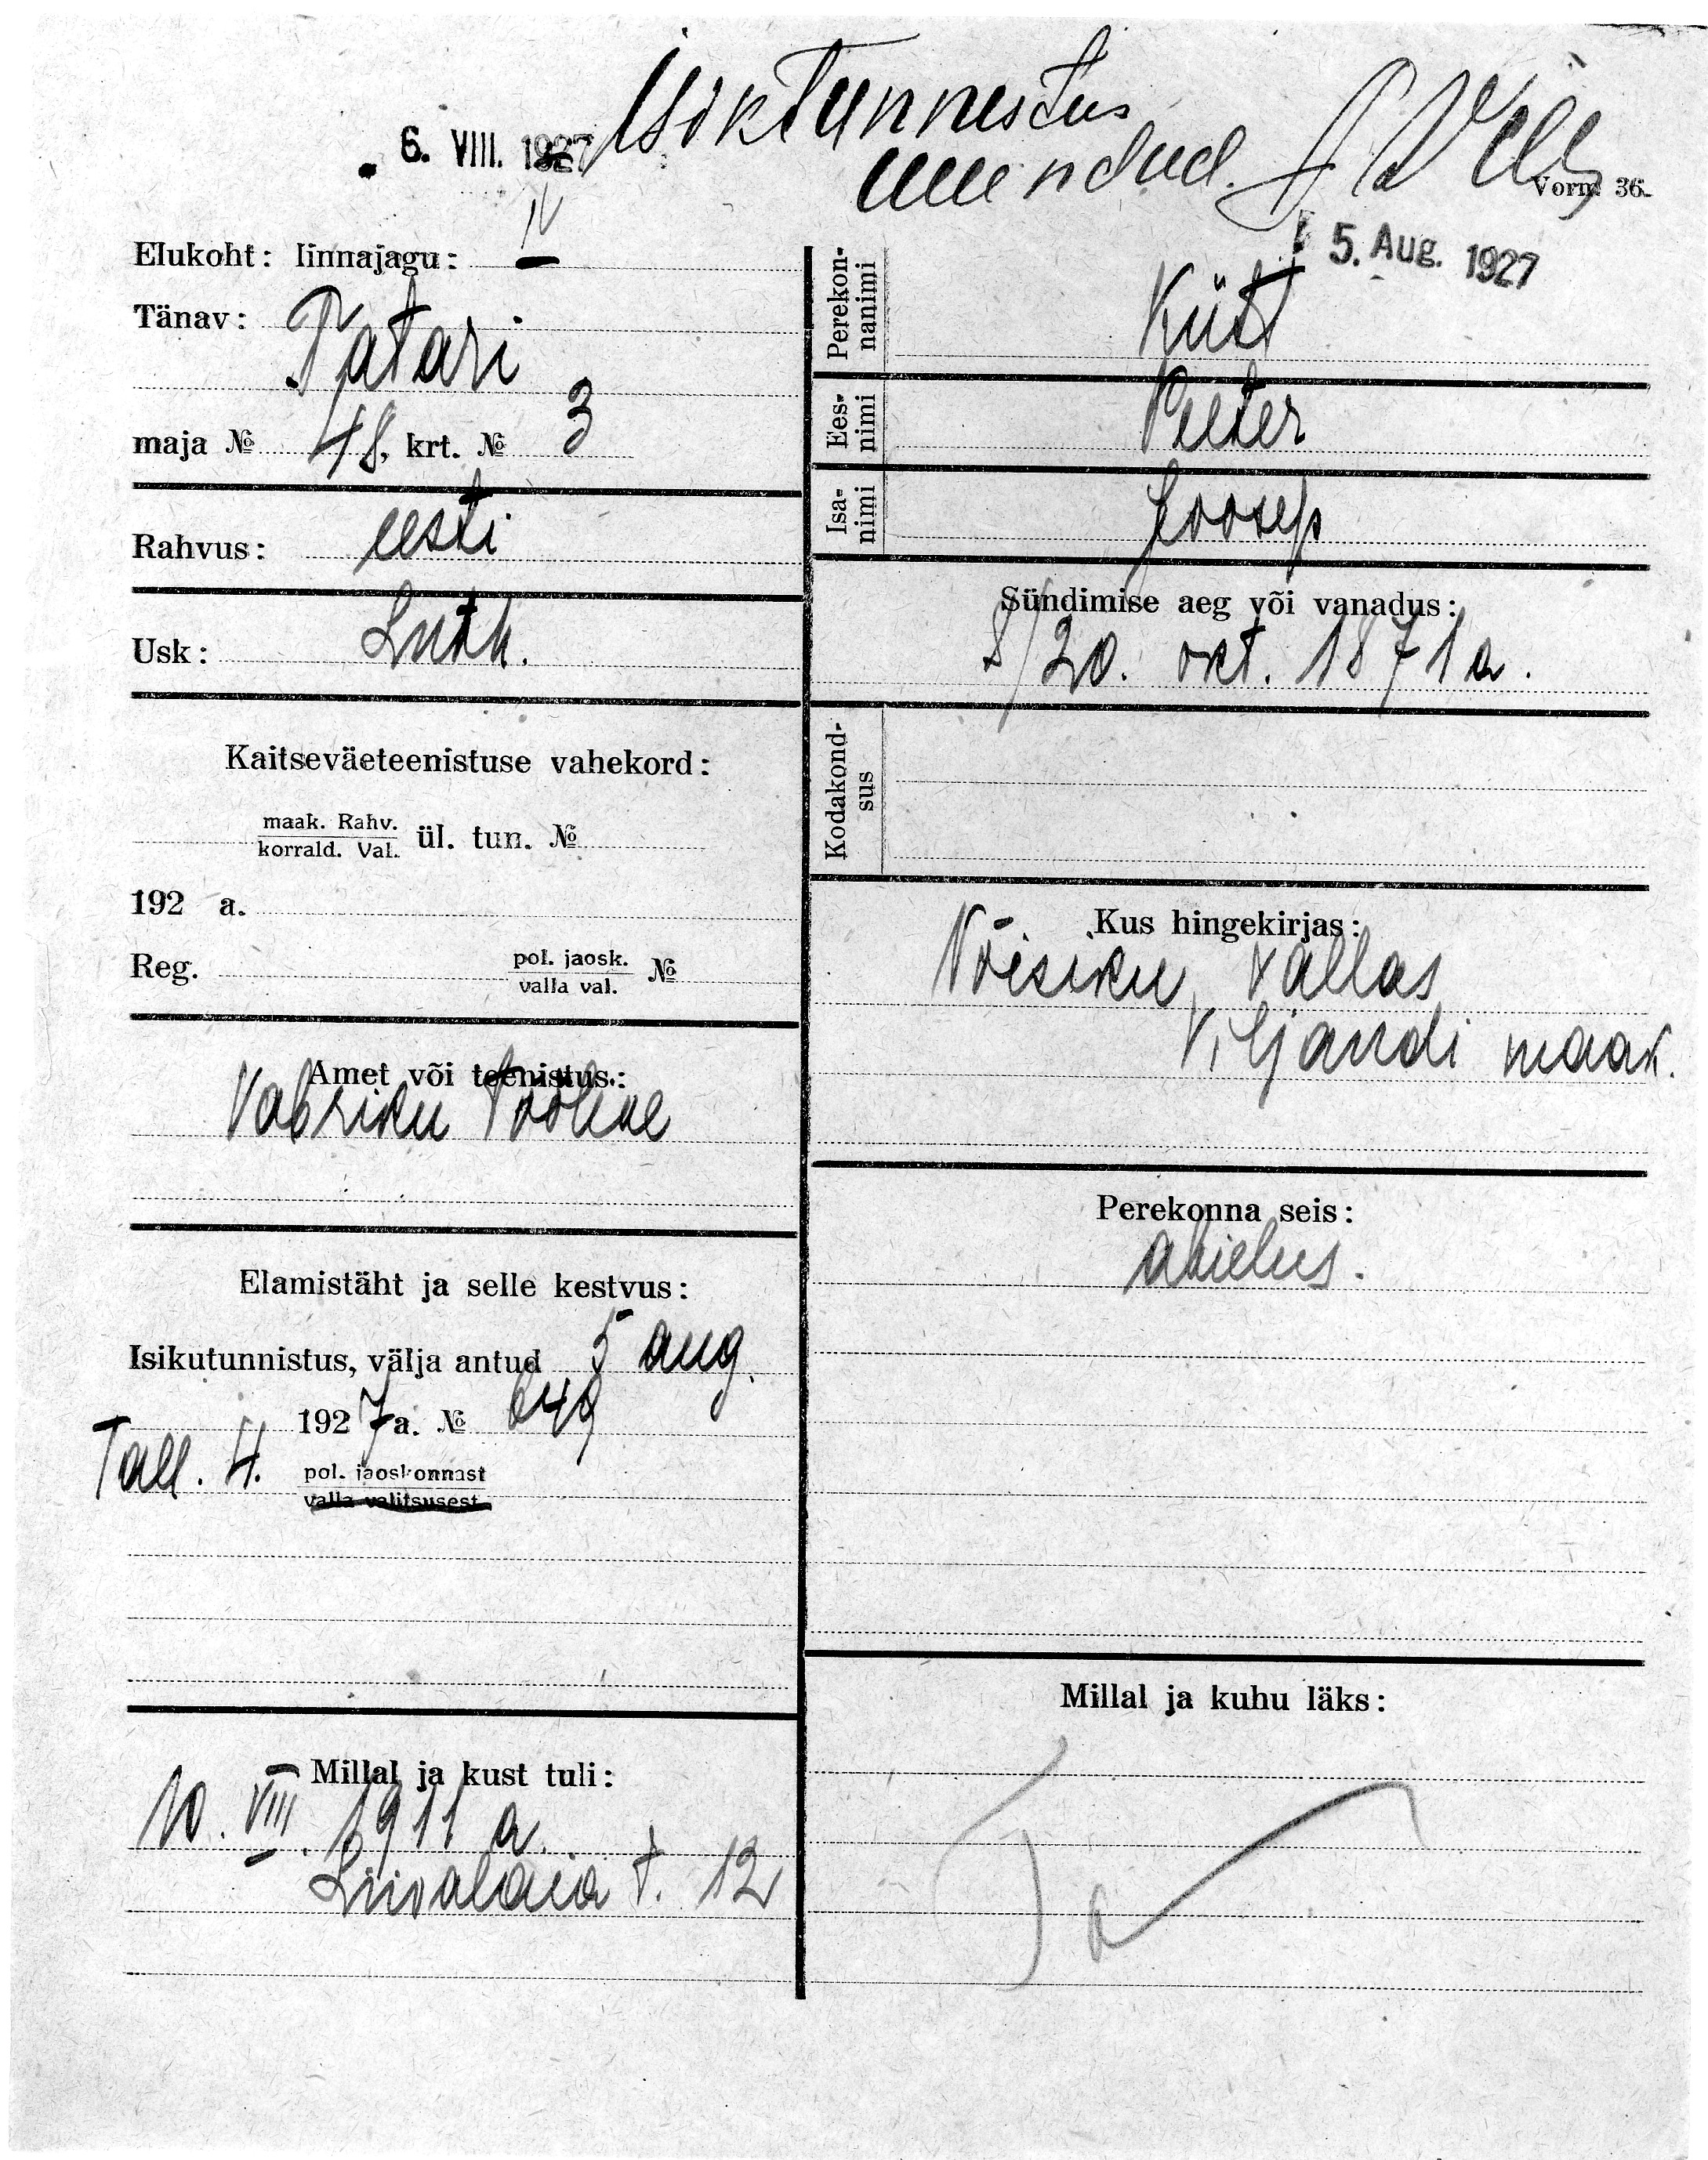 6. VIII. 1927
Isiktunnistus
uuendud.
Vorm 36.
5. Aug. 1927
Elukoht: linnajagu: IV
Tänav: Tatari
maja № 48, krt. № 3
Rahvus: eesti
Usk: Luth.
Kaitseväeteenistuse vahekord:
maak. Rahv.
korrald. Val. ül. tun. №
192 a.
Reg. pol. jaosk.
valla val. №
Amet või teenistus:
Vabriku tööline
Elamistäht ja selle kestvus:
Isikutunnistus, välja antud 5 aug.
1927 a. № 649
Tall. 4. pol. jaoskonnast
valla valitsusest
Millal ja kust tuli:
10. VIII. 1911 a.
Liivalaia t. 12
Perekon-
nanimi
Küt
Ees-
nimi
Peeter
Isa-
nimi
Joosep
Sündimise aeg või vanadus:
8/20. okt. 1871 a.
Kodakond-
sus
Kus hingekirjas:
Võisiku vallas
Viljandi maak.
Perekonna seis:
abielus.
Millal ja kuhu läks: